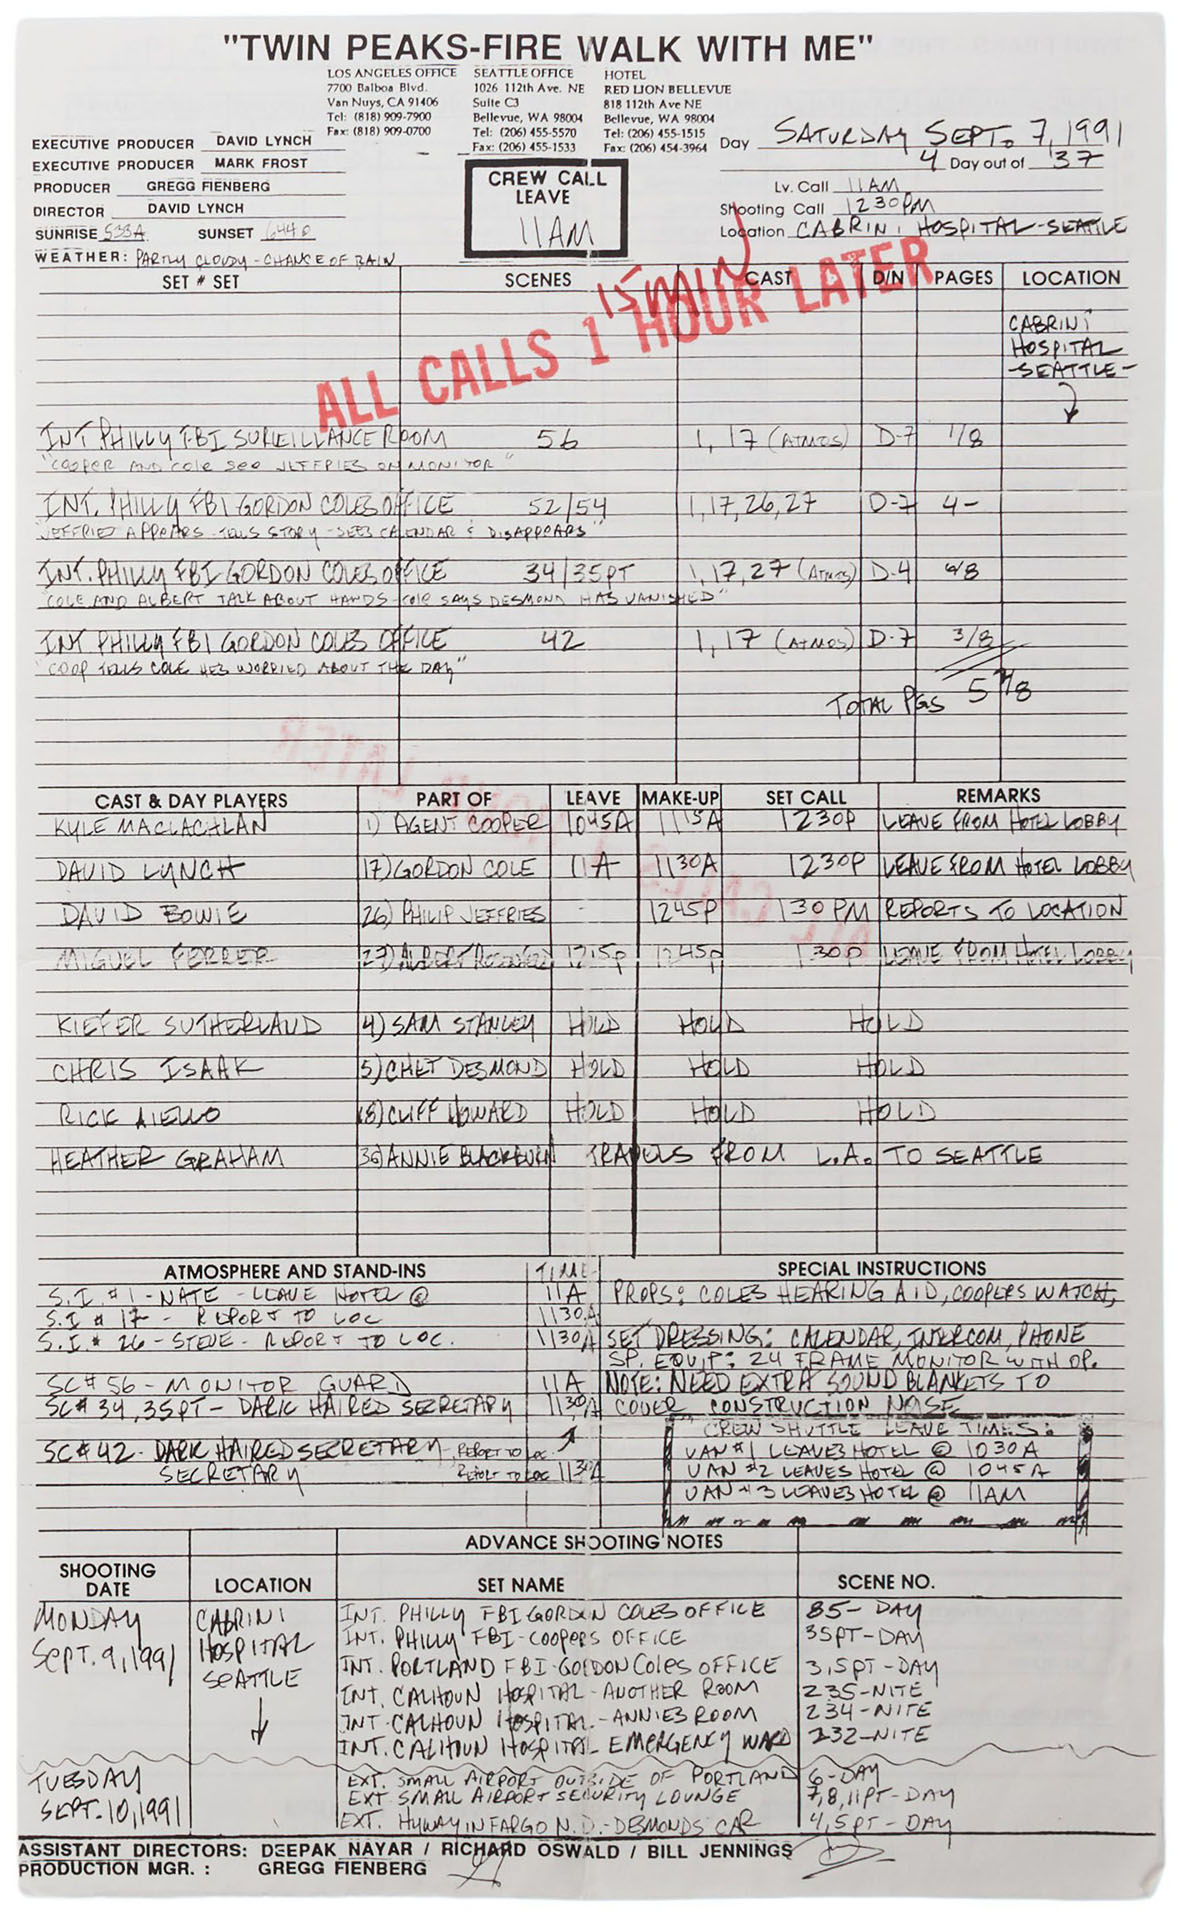 "TWIN PEAKS-FIRE WALK WITH ME"
LOS ANGELES OFFICE
7700 Balboa Blvd.
Van Nuys, CA 91406
Tel: (818) 909-7900
Fax: (818) 909-0700
SEATTLE OFFICE
1026 112th Ave. NE
Suite C3
Bellevue, WA 98004
Tel: (206) 455-5570
Fax: (206) 455-1533
HOTEL
RED LION BELLEVUE
818 112th Ave NE
Bellevue, WA 98004
Tel: (206) 455-1515
Fax: (206) 454-3964
EXECUTIVE PRODUCER DAVID LYNCH
EXECUTIVE PRODUCER MARK FROST
PRODUCER GREGG FIENBERG
DIRECTOR DAVID LYNCH
SUNRISE 533A SUNSET 644P
WEATHER: PARTLY CLOUDY - CHANCE OF RAIN
CREW CALL
LEAVE
11AM
Day SATURDAY SEPT. 7, 1991
4 Day out of 37
Lv. Call 11AM
Shooting Call 1230PM
Location CABRINI HOSPITAL-SEATTLE
SET # SET SCENES CAST D/N PAGES LOCATION
15 MIN
ALL CALLS 1 HOUR LATER
CABRINI
HOSPITAL
-SEATTLE-
INT PHILLY FBI SURVEILLANCE ROOM 56 1, 17 (ATMOS) D-7 1/8
"COOPER AND COLE SEE JEFFRIES ON MONITOR"
INT. PHILLY FBI GORDON COLES OFFICE 52/54 1,17,26,27 D-7 4-
"JEFFRIES APPEARS - TELLS STORY - SEES CALENDAR & DISAPPEARS"
INT. PHILLY FBI-GORDON COLES OFFICE 34/35PT 1,17,27 (ATMOS) D-4 6/8
"COLE AND ALBERT TALK ABOUT HANDS - COLE SAYS DESMOND HAS VANISHED"
INT PHILLY FBI GORDON COLES OFFICE 42 1, 17 (ATMOS) D-7 3/8
"COOP TELLS COLE HES WORRIED ABOUT THE DAY"
TOTAL PGS 5 2/8
CAST & DAY PLAYERS PART OF LEAVE MAKE-UP SET CALL REMARKS
KYLE MACLACHLAN 1) AGENT COOPER 1045A 1115A 1230P LEAVE FROM HOTEL LOBBY
DAVID LYNCH 17) GORDON COLE 11A 1130A 1230P LEAVE FROM HOTEL LOBBY
DAVID BOWIE 26) PHILIP JEFFRIES - 1245P 130PM REPORTS TO LOCATION
MIGUEL FERRER 27) ALBERT ROSENFIELD 1215P 1245P 130P LEAVE FROM HOTEL LOBBY
KIEFER SUTHERLAND 4) SAM STANLEY HOLD HOLD HOLD
CHRIS ISAAK 5) CHET DESMOND HOLD HOLD HOLD
RICK AIELLO 18) CLIFF HOWARD HOLD HOLD HOLD
HEATHER GRAHAM 36) ANNIE BLACKBURN TRAVELS FROM L.A. TO SEATTLE
ATMOSPHERE AND STAND-INS TIME
S.I. #1 - NATE - LEAVE HOTEL @ 11A
S.I # 17 - REPORT TO LOC 1130A
S.I. # 26 - STEVE - REPORT TO LOC. 1130A
SC# 56 - MONITOR GUARD 11A
SC# 34, 35PT - DARK HAIRED SECRETARY 1130A
SC# 42 - DARK HAIRED SECRETARY - REPORT TO LOC.
SECRETARY REPORT TO LOC 1130A
SPECIAL INSTRUCTIONS
PROPS: COLES HEARING AID, COOPERS WATCH,
SET DRESSING: CALENDAR, INTERCOM, PHONE
SP. EQUIP: 24 FRAME MONITOR WITH OP.
NOTE: NEED EXTRA SOUND BLANKETS TO
COVER CONSTRUCTION NOISE
CREW SHUTTLE LEAVE TIMES:
VAN #1 LEAVES HOTEL @ 1030A
VAN #2 LEAVES HOTEL @ 1045A
VAN #3 LEAVES HOTEL @ 11AM
ADVANCE SHOOTING NOTES
SHOOTING DATE LOCATION SET NAME SCENE NO.
MONDAY
SEPT. 9, 1991
CABRINI
HOSPITAL
SEATTLE
INT. PHILLY FBI GORDON COLES OFFICE 85- DAY
INT. PHILLY FBI-COOPERS OFFICE 35PT-DAY
INT. PORTLAND FBI-GORDON COLES OFFICE 3,5PT-DAY
INT. CALHOUN HOSPITAL-ANOTHER ROOM 235-NITE
INT-CALHOUN HOSPITAL-ANNIES ROOM 234-NITE
INT. CALHOUN HOSPITAL EMERGENCY WARD 232-NITE
TUESDAY
SEPT. 10, 1991
EXT. SMALL AIRPORT OUTSIDE OF PORTLAND 6-DAY
EXT SMALL AIRPORT SECURITY LOUNGE 7,8,11PT-DAY
EXT. HYWAY IN FARGO N.D.-DESMONDS CAR 4,5PT-DAY
ASSISTANT DIRECTORS: DEEPAK NAYAR / RICHARD OSWALD / BILL JENNINGS
PRODUCTION MGR. : GREGG FIENBERG